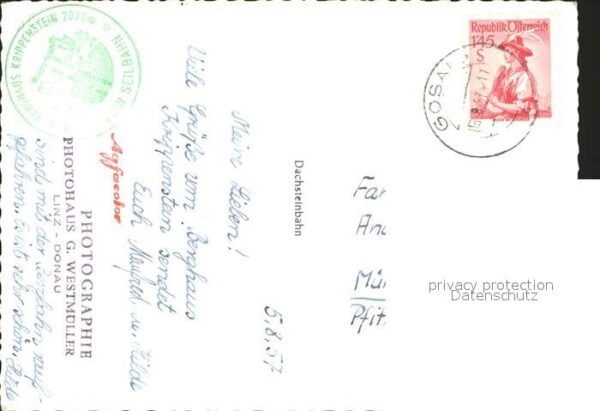 BERGHAUS KRIPPENSTEIN 2070m
SEILBAHN
Republik Österreich
1.45
S
GOSAU
5.8.57
Meine Lieben!
Viele Grüße vom Berghaus
Krippenstein sendet
Euch Manfred u. Hilde
Sind mit der Seilbahn rauf-
gefahren, es ist sehr schön,
Agfacolor
PHOTOGRAPHIE
PHOTOHAUS G. WESTMÜLLER
LINZ - DONAU
Dachsteinbahn
Fa
An
Mü
Pfit
privacy protection
Datenschutz